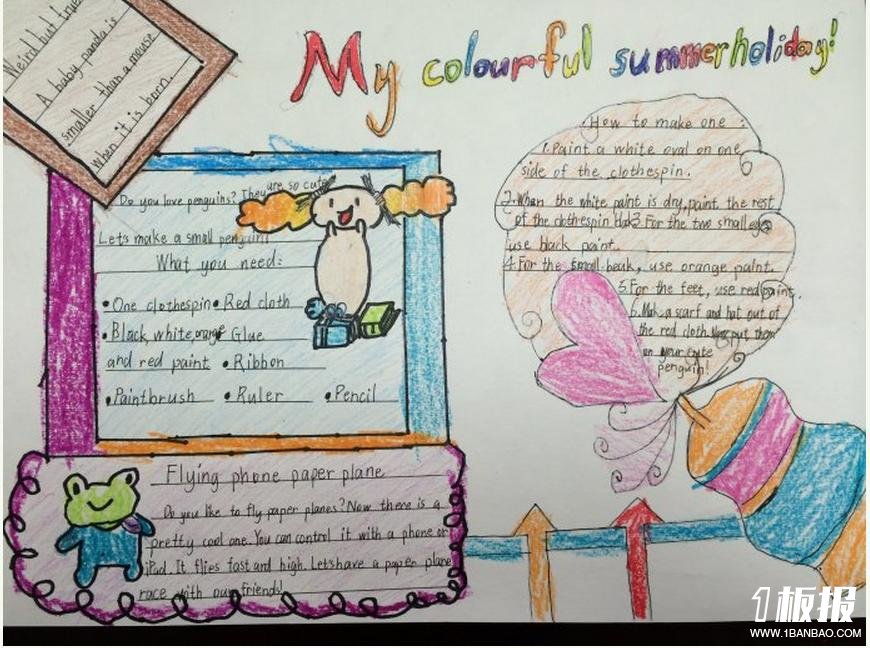 My colourful summer holiday!
Weird but true
A baby panda is
smaller than a mouse
when it is born.
Do you love penguins? They are so cute
Let's make a small penguin!
What you need:
• One clothespin • Red cloth
• Black, white, orange • Glue
and red paint • Ribbon
• Paintbrush • Ruler • Pencil
How to make one :
1. Paint a white oval on one
side of the clothespin.
2. When the white paint is dry, paint the rest
of the clothespin black 3. For the two small eyes
use black paint.
4. For the small beak, use orange paint.
5. For the feet, use red paint.
6. Make a scarf and hat out of
the red cloth. Now put them
on your cute
penguin!
Flying phone paper plane
Do you like to fly paper planes? Now there is a
pretty cool one. You can control it with a phone or
iPad. It flies fast and high. Let's have a paper plane
race with our friends!
1板报
WWW.1BANBAO.COM